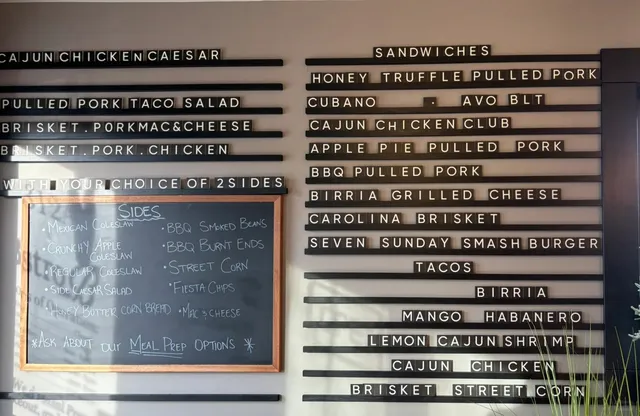 CAJUN CHICKEN CAESAR
PULLED PORK TACO SALAD
BRISKET.PORK MAC&CHEESE
BRISKET.PORK.CHICKEN
WITH YOUR CHOICE OF 2 SIDES
SIDES
• MEXICAN COLESLAW
• CRUNCHY APPLE
COLESLAW
• REGULAR COLESLAW
• SIDE CAESAR SALAD
• HONEY BUTTER CORN BREAD
• BBQ SMOKED BEANS
• BBQ BURNT ENDS
• STREET CORN
• FIESTA CHIPS
• MAC & CHEESE
*ASK ABOUT OUR MEAL PREP OPTIONS *
SANDWICHES
HONEY TRUFFLE PULLED PORK
CUBANO . AVO BLT
CAJUN CHICKEN CLUB
APPLE PIE PULLED PORK
BBQ PULLED PORK
BIRRIA GRILLED CHEESE
CAROLINA BRISKET
SEVEN SUNDAY SMASH BURGER
TACOS
BIRRIA
MANGO HABANERO
LEMON CAJUN SHRIMP
CAJUN CHICKEN
BRISKET STREET CORN